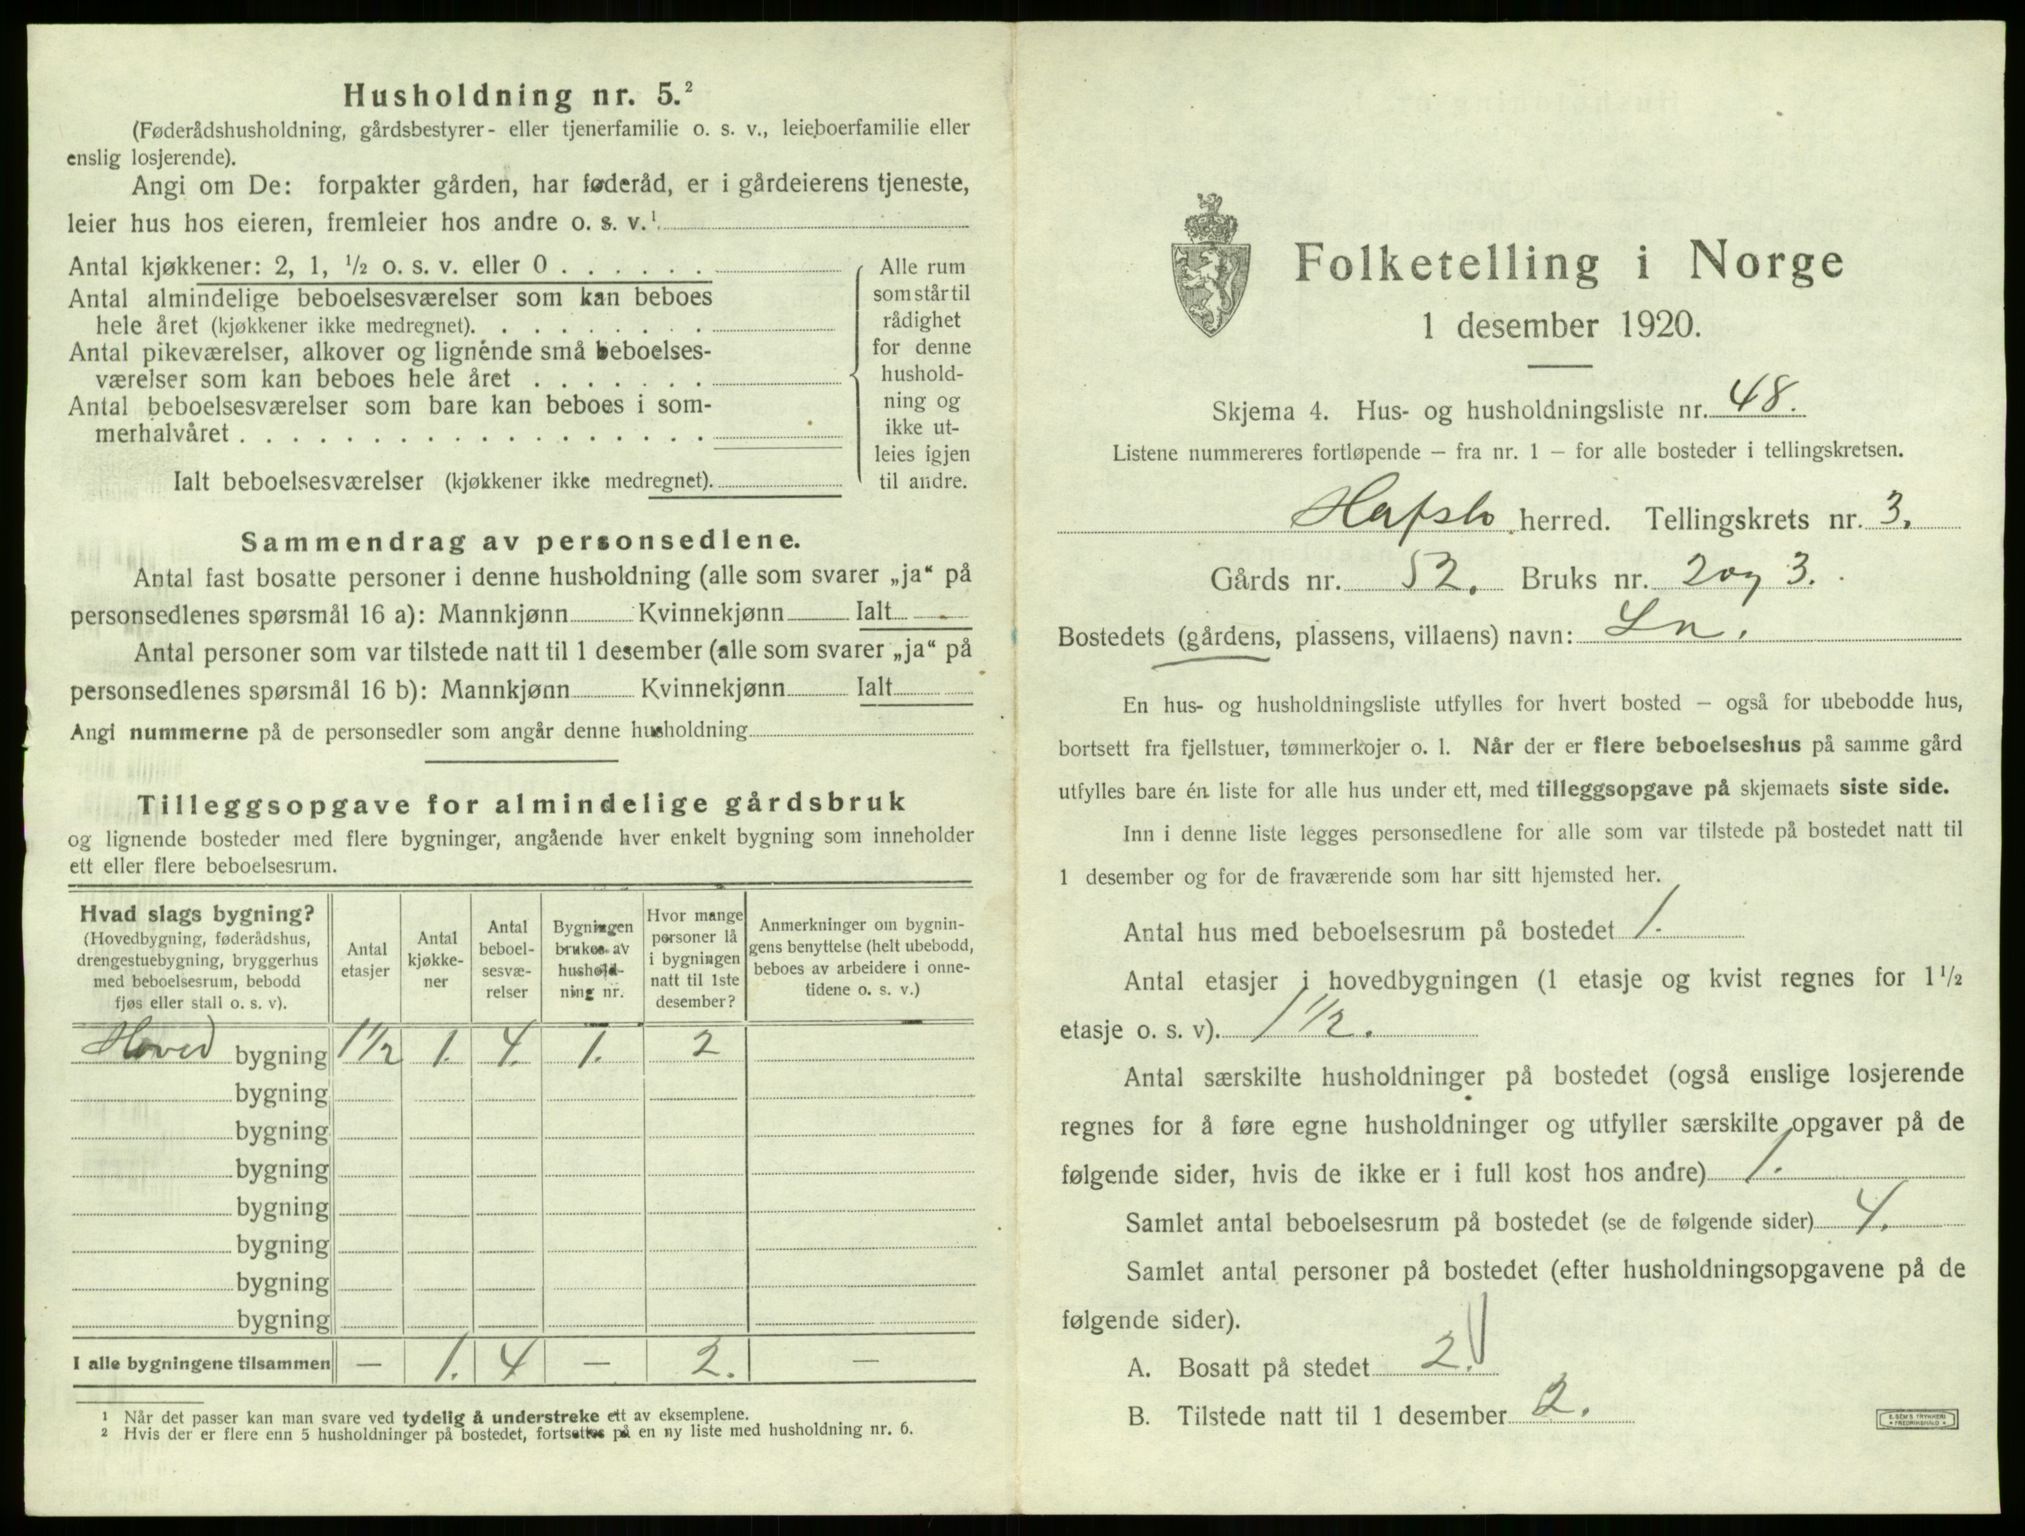 Husholdning nr. 5.²
(Føderådshusholdning, gårdsbestyrer- eller tjenerfamilie o. s. v., leieboerfamilie eller
enslig losjerende).
Angi om De: forpakter gården, har føderåd, er i gårdeierens tjeneste,
leier hus hos eieren, fremleier hos andre o. s. v.¹
Antal kjøkkener: 2, 1, ½ o. s. v. eller 0
Antal almindelige beboelsesværelser som kan beboes
hele året (kjøkkener ikke medregnet).
Antal pikeværelser, alkover og lignende små beboelses-
værelser som kan beboes hele året
Antal beboelsesværelser som bare kan beboes i som-
merhalvåret
Ialt beboelsesværelser (kjøkkener ikke medregnet).
Alle rum
som står til
rådighet
for denne
hushold-
ning og
ikke ut-
leies igjen
til andre.
Sammendrag av personsedlene.
Antal fast bosatte personer i denne husholdning (alle som svarer „ja“ på
personsedlenes spørsmål 16 a): Mannkjønn Kvinnekjønn Ialt
Antal personer som var tilstede natt til 1 desember (alle som svarer „ja“ på
personsedlenes spørsmål 16 b): Mannkjønn Kvinnekjønn Ialt
Angi nummerne på de personsedler som angår denne husholdning
Tilleggsopgave for almindelige gårdsbruk
og lignende bosteder med flere bygninger, angående hver enkelt bygning som inneholder
ett eller flere beboelsesrum.
Hvad slags bygning?
(Hovedbygning, føderådshus,
drengestuebygning, bryggerhus
med beboelsesrum, bebodd
fjøs eller stall o. s. v).
Antal
etasjer
Antal
kjøkke-
ner
Antal
beboel-
sesvæ-
relser
Bygningen
brukes av
hushold-
ning nr.
Hvor mange
personer lå
i bygningen
natt til 1ste
desember?
Anmerkninger om bygnin-
gens benyttelse (helt ubebodd,
beboes av arbeidere i onne-
tidene o. s. v.)
Hoved bygning 1½ 1. 4. 1. 2
bygning
bygning
bygning
bygning
bygning
bygning
bygning
I alle bygningene tilsammen — 1. 4 — 2. —
¹ Når det passer kan man svare ved tydelig å understreke ett av eksemplene.
² Hvis der er flere enn 5 husholdninger på bostedet, fortsettes på en ny liste med husholdning nr. 6.
Folketelling i Norge
1 desember 1920.
Skjema 4. Hus- og husholdningsliste nr. 48.
Listene nummereres fortløpende – fra nr. 1 – for alle bosteder i tellingskretsen.
Hafslo herred. Tellingskrets nr. 3.
Gårds nr. 52. Bruks nr. 2 og 3.
Bostedets (gårdens, plassens, villaens) navn: Ln.
En hus- og husholdningsliste utfylles for hvert bosted – også for ubebodde hus,
bortsett fra fjellstuer, tømmerkojer o. l. Når der er flere beboelseshus på samme gård
utfylles bare én liste for alle hus under ett, med tilleggsopgave på skjemaets siste side.
Inn i denne liste legges personsedlene for alle som var tilstede på bostedet natt til
1 desember og for de fraværende som har sitt hjemsted her.
Antal hus med beboelsesrum på bostedet 1.
Antal etasjer i hovedbygningen (1 etasje og kvist regnes for 1½
etasje o. s. v). 1½.
Antal særskilte husholdninger på bostedet (også enslige losjerende
regnes for å føre egne husholdninger og utfyller særskilte opgaver på de
følgende sider, hvis de ikke er i full kost hos andre) 1.
Samlet antal beboelsesrum på bostedet (se de følgende sider) 4.
Samlet antal personer på bostedet (efter husholdningsopgavene på de
følgende sider).
A. Bosatt på stedet 2.
B. Tilstede natt til 1 desember 2.
E. SEM'S TRYKKERI
FREDRIKSHALD